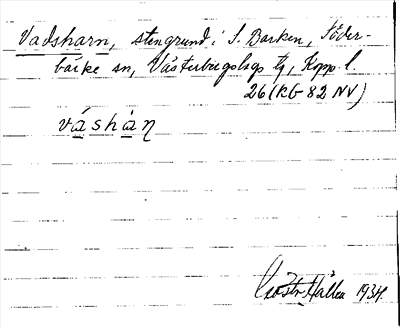 Vadsharn, stengrund i S. Barken, Söder-
bärke sn, Västerbergslags tg, Kopp. l.
26 (RG 82 NV)
váshàn
Hallen 1934.